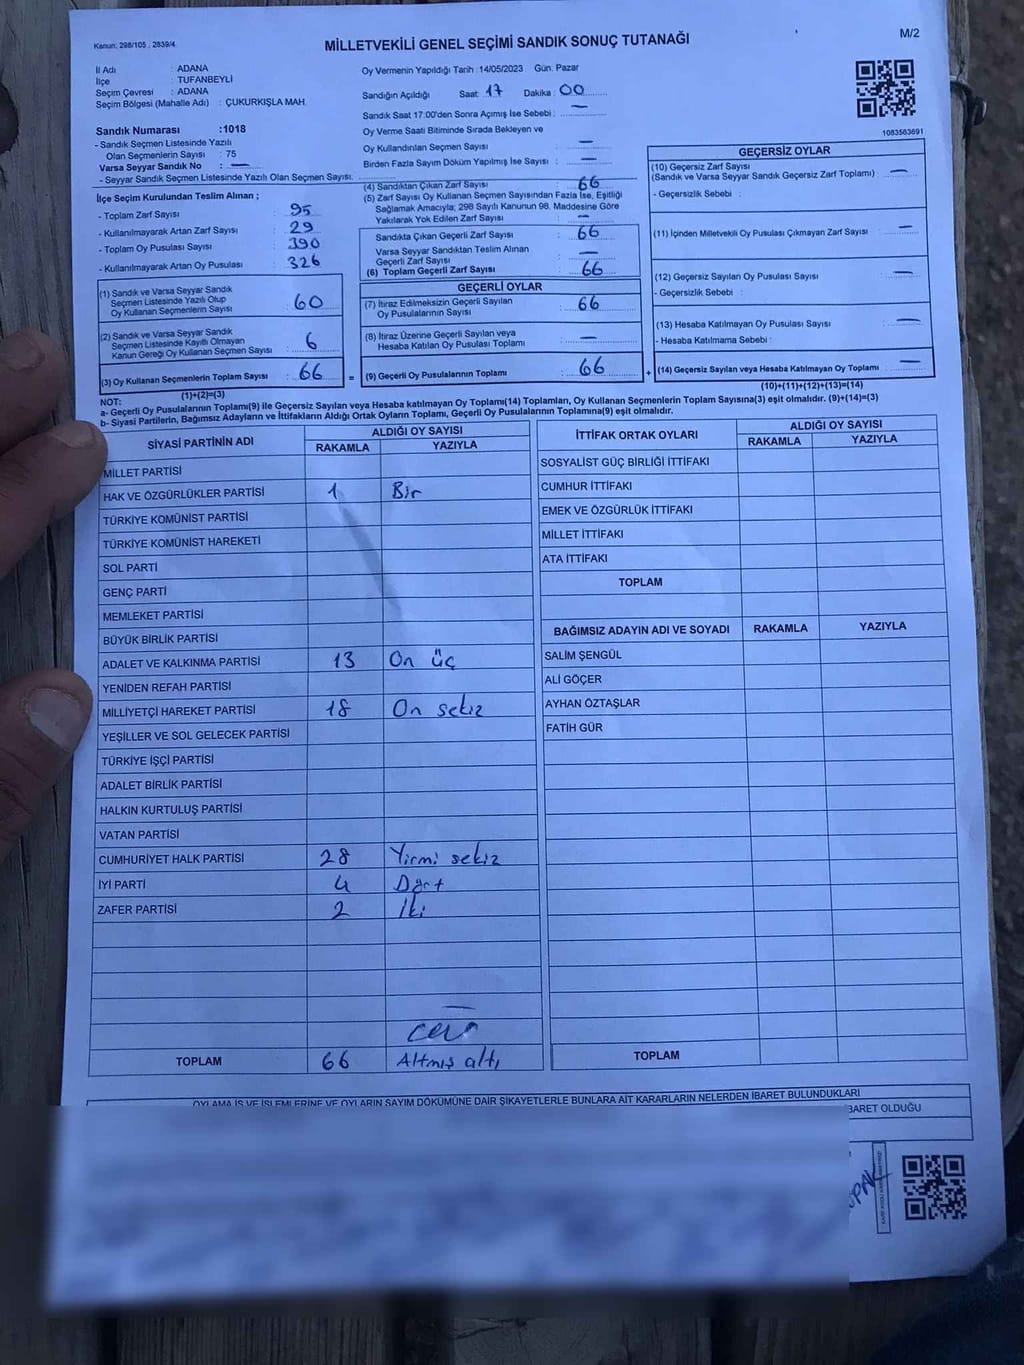 Kanun: 298/105 , 2839/4
MİLLETVEKİLİ GENEL SEÇİMİ SANDIK SONUÇ TUTANAĞI
M/2
İl Adı : ADANA
İlçe : TUFANBEYLİ
Seçim Çevresi : ADANA
Seçim Bölgesi (Mahalle Adı) : ÇUKURKIŞLA MAH.
Sandık Numarası :1018
- Sandık Seçmen Listesinde Yazılı
Olan Seçmenlerin Sayısı : 75
Varsa Seyyar Sandık No : —
- Seyyar Sandık Seçmen Listesinde Yazılı Olan Seçmen Sayısı:
Oy Vermenin Yapıldığı Tarih :14/05/2023 Gün: Pazar
Sandığın Açıldığı Saat: 17 Dakika: 00
Sandık Saat 17:00'den Sonra Açımış İse Sebebi : —
Oy Verme Saati Bitiminde Sırada Bekleyen ve
Oy Kullandırılan Seçmen Sayısı : —
Birden Fazla Sayım Döküm Yapılmış İse Sayısı : —
1083563691
İlçe Seçim Kurulundan Teslim Alınan ;
- Toplam Zarf Sayısı : 95
- Kullanılmayarak Artan Zarf Sayısı : 29
- Toplam Oy Pusulası Sayısı : 390
- Kullanılmayarak Artan Oy Pusulası : 326
(1) Sandık ve Varsa Seyyar Sandık
Seçmen Listesinde Yazılı Olup
Oy Kullanan Seçmenlerin Sayısı : 60
(2) Sandık ve Varsa Seyyar Sandık
Seçmen Listesinde Kayıtlı Olmayan
Kanun Gereği Oy Kullanan Seçmen Sayısı : 6
(3) Oy Kullanan Seçmenlerin Toplam Sayısı : 66
(1)+(2)=(3)
(4) Sandıktan Çıkan Zarf Sayısı : 66
(5) Zarf Sayısı Oy Kullanan Seçmen Sayısından Fazla İse, Eşitliği
Sağlamak Amacıyla; 298 Sayılı Kanunun 98. Maddesine Göre
Yakılarak Yok Edilen Zarf Sayısı : —
Sandıkta Çıkan Geçerli Zarf Sayısı : 66
Varsa Seyyar Sandıktan Teslim Alınan
Geçerli Zarf Sayısı : —
(6) Toplam Geçerli Zarf Sayısı : 66
GEÇERLİ OYLAR
(7) İtiraz Edilmeksizin Geçerli Sayılan
Oy Pusulalarının Sayısı : 66
(8) İtiraz Üzerine Geçerli Sayılan veya
Hesaba Katılan Oy Pusulası Toplamı : —
=
(9) Geçerli Oy Pusulalarının Toplamı : 66
+
GEÇERSİZ OYLAR
(10) Geçersiz Zarf Sayısı
(Sandık ve Varsa Seyyar Sandık Geçersiz Zarf Toplamı) : —
- Geçersizlik Sebebi :
(11) İçinden Milletvekili Oy Pusulası Çıkmayan Zarf Sayısı : —
(12) Geçersiz Sayılan Oy Pusulası Sayısı : —
- Geçersizlik Sebebi :
(13) Hesaba Katılmayan Oy Pusulası Sayısı : —
- Hesaba Katılmama Sebebi :
(14) Geçersiz Sayılan veya Hesaba Katılmayan Oy Toplamı : —
(10)+(11)+(12)+(13)=(14)
NOT:
a- Geçerli Oy Pusulalarının Toplamı(9) ile Geçersiz Sayılan veya Hesaba katılmayan Oy Toplamı(14) Toplamları, Oy Kullanan Seçmenlerin Toplam Sayısına(3) eşit olmalıdır. (9)+(14)=(3)
b- Siyasi Partilerin, Bağımsız Adayların ve İttifakların Aldığı Ortak Oyların Toplamı, Geçerli Oy Pusulalarının Toplamına(9) eşit olmalıdır.
SİYASİ PARTİNİN ADI ALDIĞI OY SAYISI
RAKAMLA YAZIYLA
MİLLET PARTİSİ
HAK VE ÖZGÜRLÜKLER PARTİSİ 1 Bir
TÜRKİYE KOMÜNİST PARTİSİ
TÜRKİYE KOMÜNİST HAREKETİ
SOL PARTİ
GENÇ PARTİ
MEMLEKET PARTİSİ
BÜYÜK BİRLİK PARTİSİ
ADALET VE KALKINMA PARTİSİ 13 On üç
YENİDEN REFAH PARTİSİ
MİLLİYETÇİ HAREKET PARTİSİ 18 On sekiz
YEŞİLLER VE SOL GELECEK PARTİSİ
TÜRKİYE İŞÇİ PARTİSİ
ADALET BİRLİK PARTİSİ
HALKIN KURTULUŞ PARTİSİ
VATAN PARTİSİ
CUMHURİYET HALK PARTİSİ 28 Yirmi sekiz
İYİ PARTİ 4 Dört
ZAFER PARTİSİ 2 İki
TOPLAM 66 Altmış altı
İTTİFAK ORTAK OYLARI ALDIĞI OY SAYISI
RAKAMLA YAZIYLA
SOSYALİST GÜÇ BİRLİĞİ İTTİFAKI
CUMHUR İTTİFAKI
EMEK VE ÖZGÜRLÜK İTTİFAKI
MİLLET İTTİFAKI
ATA İTTİFAKI
TOPLAM
BAĞIMSIZ ADAYIN ADI VE SOYADI RAKAMLA YAZIYLA
SALİM ŞENGÜL
ALİ GÖÇER
AYHAN ÖZTAŞLAR
FATİH GÜR
TOPLAM
OYLAMA İŞ VE İŞLEMLERİNE VE OYLARIN SAYIM DÖKÜMÜNE DAİR ŞİKAYETLERLE BUNLARA AİT KARARLARIN NELERDEN İBARET BULUNDUKLARI
BARET OLDUĞU